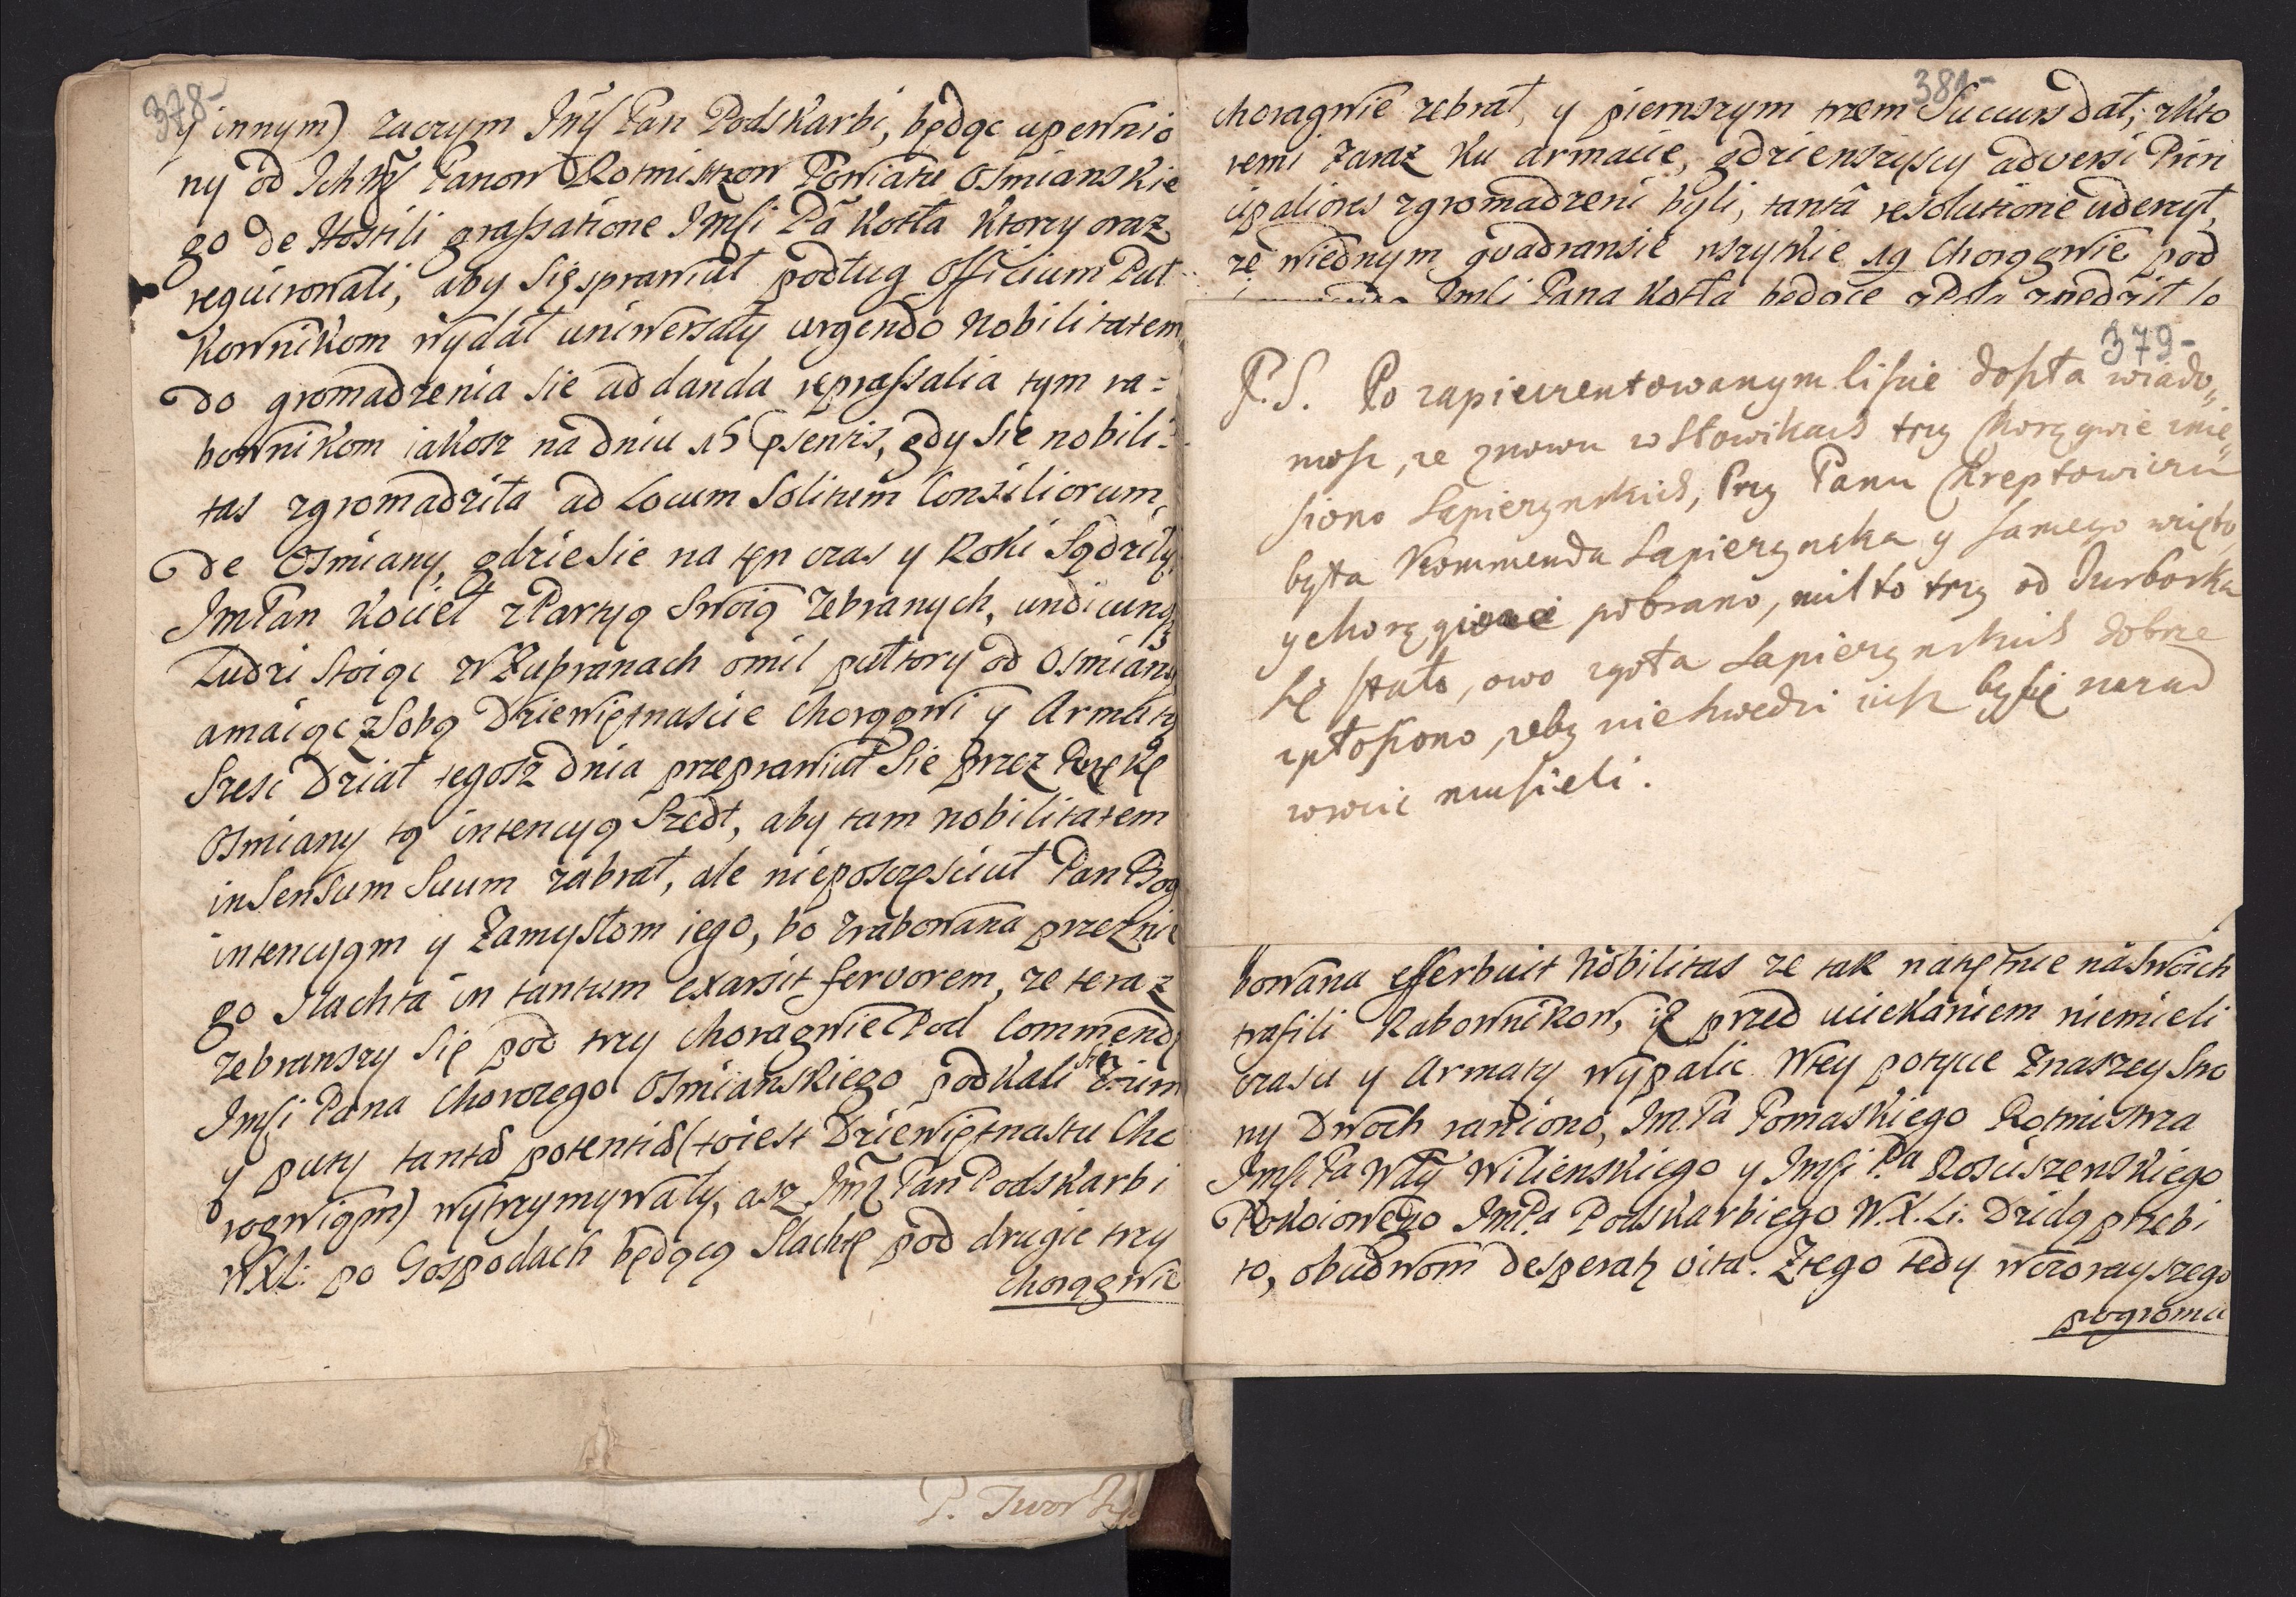 378-
y innym) zaczym Jm Pan Podskarbi, będąc upewnio
ny od Ich Panow Rotmistrzow Powiatu Osmianskie
go de Hostili grassatione Jmsci Pā Kotła Ktorzy oraz
requirowali, aby Się sprawiał podług officium Puł
Kownikom wydał uniwersały urgendo Nobilitatem
do gromadzenia Sie ad danda repressalia tym ra=
bownikom iakosz na dniu 15 psentis, gdy Sie nobili=
tas zgromadziła ad Locum Solitum Consiliorum,
de Osmiany, gdzie Sie na ten czas y Roki Sądziły,
Jm Pan Kocieł z Partyą Swoią Zebranych, undicunq
Ludzi Stoiąc w Zupranach omil pułtory od Osmiany
amaiąc z Sobą Dziewiętnascie Chorągwi y Armaty
Szesc Dział tegosz dnia przeprawiał Sie przez Rzekę
Osmiany tą intencyą Szedł, aby tam nobilitatem
in Sensum Suum zabrał, ale nieposczęscił Pan Bog
intencyom y Zamysłom iego, bo Zrabowana przez nie
go Slachta in tantum exarsit fervorem, ze teraz
zebrawszy Się pod trzy choragwie Pod Commendą
Jmsci Pana Chorozego Osmianskiego podkali
y puty tantā potentiā (toiest Dziewiętnastu Cho
rogwiom) wytrzymywały, asz Jm Pan Podskarbi
WXL: po Gospodach będącą Slachtę pod drugie trzy
chorągwie
P. Twor
381-
choragwie zebrał, y pierwszym trzem Succurs dał; z Kto
remi Zaraz Ku armacie, gdzie wszyscy adversi Prin
cipaliores zgromadzeni byli, tantā resolutione uderzył,
ze wiednym quadransie wszytkie 19 Chorągwie pod
Jmsci Pana Kotła będące z Pola znędził to
379-
P.S. Po zapieczentowanym liscie doszła wiado„
mosc, ze znowu w Słowikach trzy Chorągwie znie„
siono Sapiezynskich, Przy Panu Chreptowiczu
była Kommenda Sapiezynska y samego wzięto,
y chorągiewi pobrano, mil to trzy od Jurborka
się stało, owo zgoła Sapiezynskich dobrze
spłoszono, zeby nie Szwedzi iusz by się nazad
wrocic musieli.
bowana efferbuit Nobilitas ze tak natętnie nā swoich
trafili Rabownikow, iż przed uciekāniem niemieli
czasu y Armaty wypalic. Wtey potyce Znaszey Stro
ny Dwoch raniono, Jm. Pa Pomaskiego Rotmistrza
Jmsci Pa Wdy Wilienskiego y Jmsci Pa Rosciszewskiego
Pokoiowego Jm Pa Podskarbiego W.X.Li. Dzidą przebi
to, obudwom desperata vita. Ztego tedy wczorayszego
pogromu